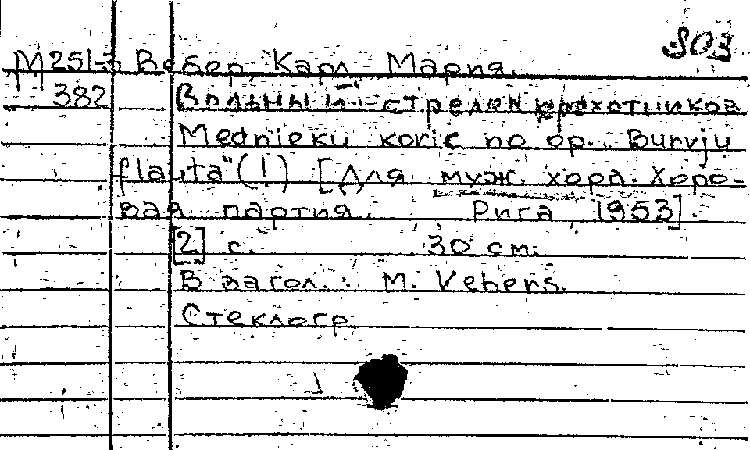 803
М 251-3 Вебер, Карл Мария.
382 Вольный стрелок. охотников
Mednieku koris no op. "Burvju
flauta" (!) [Для муж. хора. Хоро-
вая партия. Рига, 1953].
[2] с. 30 см.
В загол.: M. Vebers.
Стеклогр.